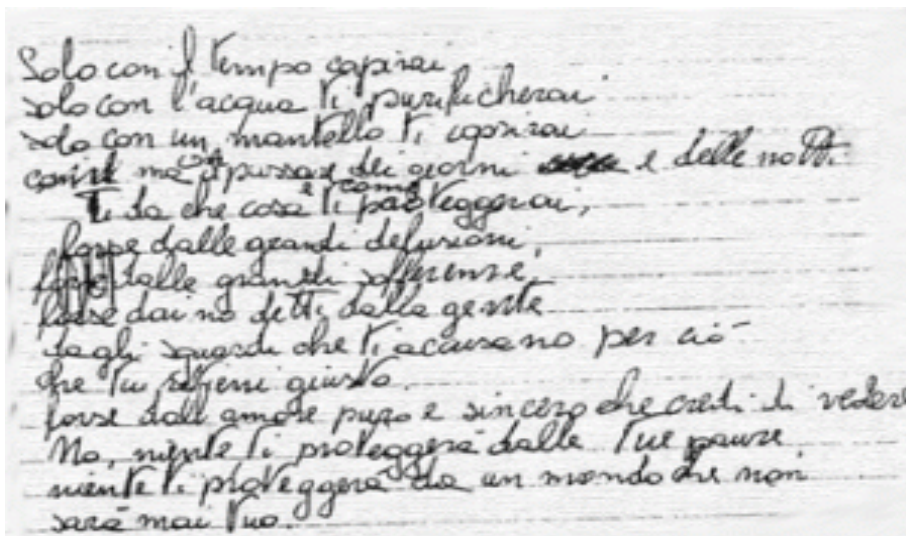 Solo con il tempo capirai
solo con l'acqua ti purificherai
solo con un mantello ti coprirai
ma con il passare dei giorni e delle notti.
Ti da che cosa e come ti proteggerai,
forse dalle grandi delusioni,
forse dalle grandi sofferenze,
forse dai no detti dalla gente
dagli sguardi che ti accusano per ciò
che tu ritieni giusto.
forse dall'amore puro e sincero che credi di vedere
No, niente ti proteggerà dalle tue paure
niente ti proteggerà da un mondo che non
sarà mai tuo.